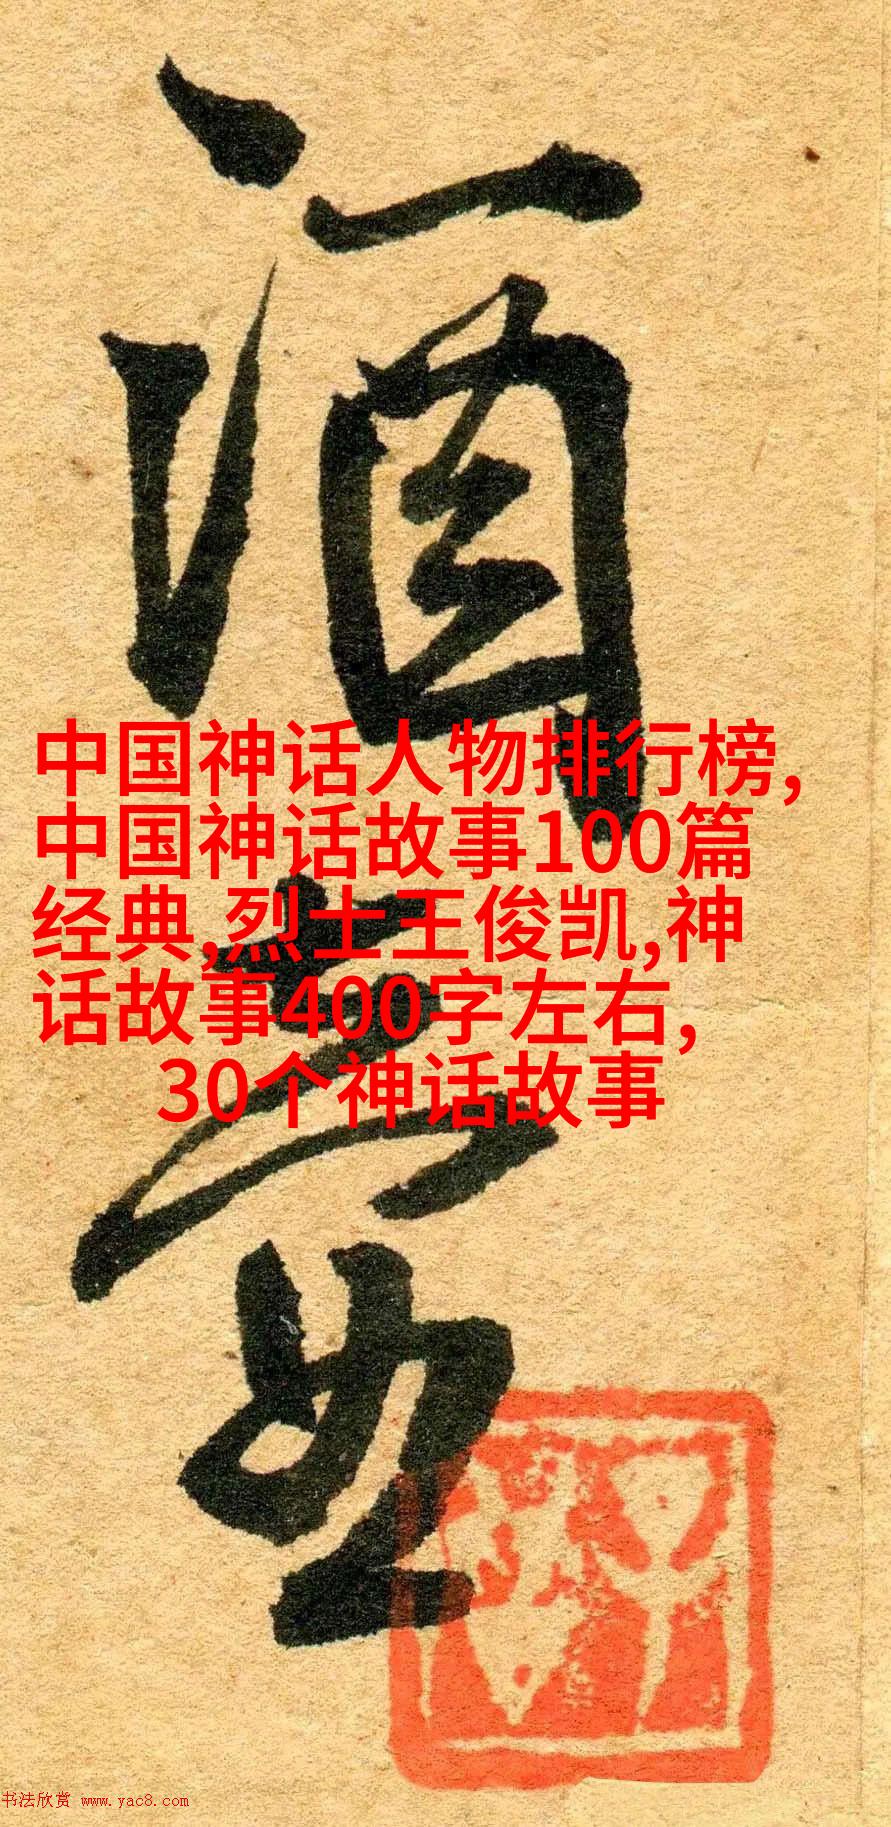 酒
中国神话人物排行榜,
中国神话故事100篇
经典,烈士王俊凯,神
话故事400字左右,
30个神话故事
书法欣赏 www.yac8.com